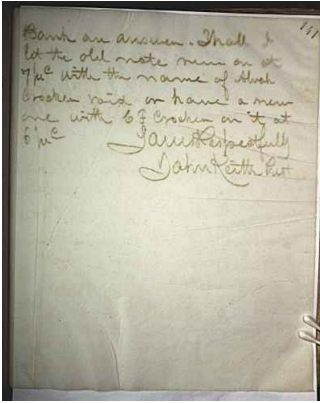 191
Bank an answer. Shall I
let the old note run on at
7 pr c with the name of Alvah
Crocker void or have a new
one with C F Crocker on it at
6 pr c
Yours Respectfully
John Keith Pres